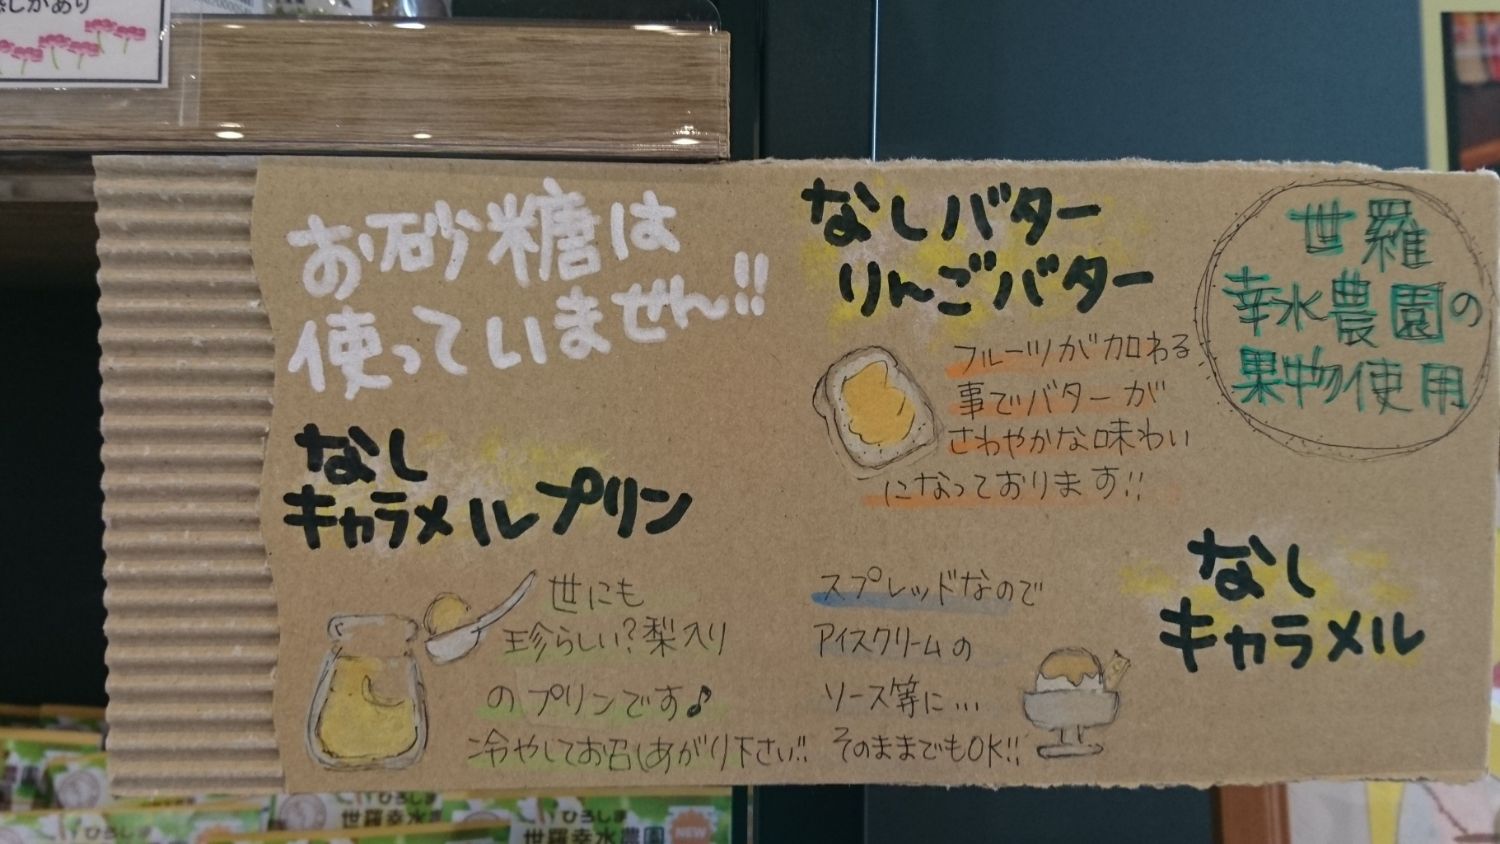 しかあり
お砂糖は
使っていません!!
なしバター
りんごバター
フルーツが加わる
事でバターが
さわやかな味わい
になっております!!
世羅
幸水農園の
果物使用
なし
キャラメルプリン
世にも
珍らしい?梨入り
のプリンです♪
冷やしてお召しあがり下さい!!
なし
キャラメル
スプレッドなので
アイスクリームの
ソース等に…
そのままでもOK!!
ひろしま
世羅幸水農
ひろしま
世羅幸水農園
NEW